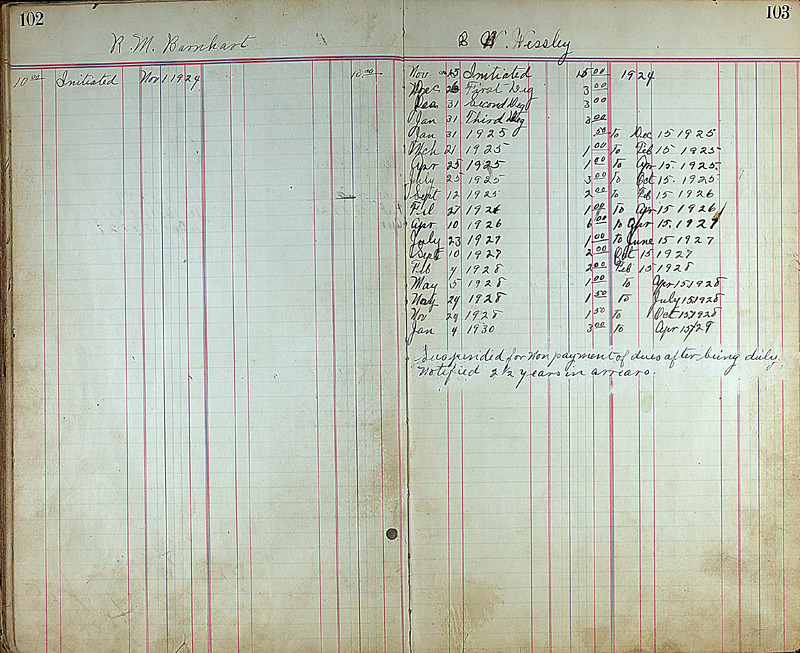 102
R. M. Barnhart
10.00 Initiated Nov 1 1924 10.00
103
W. Hessley
Nov 15 Initiated 15 00 1924
Dec 26 First Deg 3 00
Jan 31 Second Deg 3 00
Jan 31 Third Deg 3 00
Jan 31 1925 50 to Dec 15 1925
Mch 21 1925 1 00 To Feb 15 1925
Apr 25 1925 1 00 To Apr 15 1925
July 25 1925 3 00 To Oct 15 1925
Sept 12 1925 2 00 To Feb 15 1926
Feb 27 1926 1 00 To Apr 15 1926
Apr 10 1926 6 00 to Apr 15, 1927
July 23 1927 1 00 to June 15 1927
Sept 10 1927 2 00 Oct 15 1927
Feb 4 1928 2 00 Feb 15 1928
May 5 1928 1 00 To Apr 15 1928
May 29 1928 1 50 To July 15 1928
Nov 29 1928 1 50 To Oct 15 1928
Jan 4 1930 3 00 To Apr 15/29
Suspended for Non payment of dues after being duly
Notified 2 1/2 years in arrears.